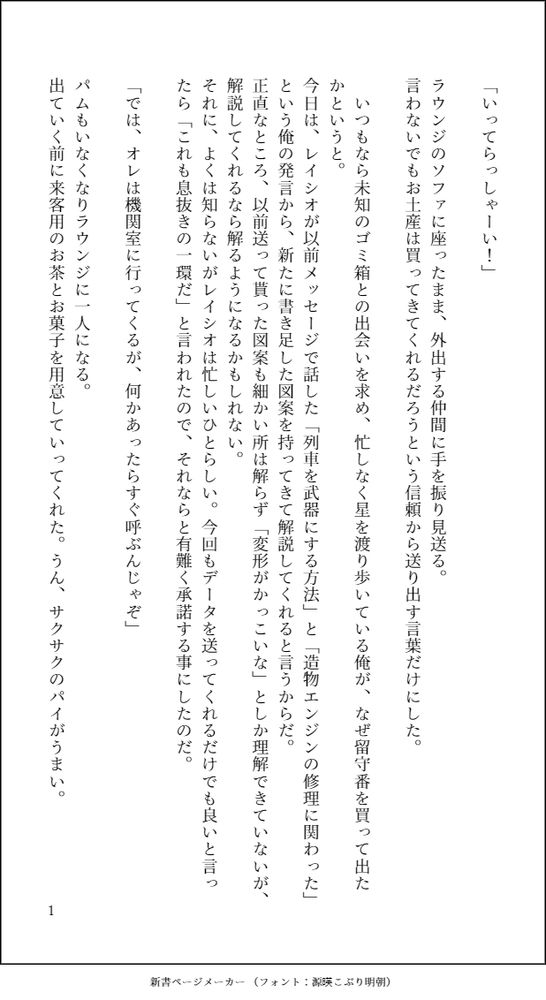 「いってらっしゃーい！」
ラウンジのソファに座ったまま、外出する仲間に手を振り見送る。
言わないでもお土産は買ってきてくれるだろうという信頼から送り出す言葉だけにした。
　いつもなら未知のゴミ箱との出会いを求め、忙しなく星を渡り歩いている俺が、なぜ留守番を買って出た
かというと。
今日は、レイシオが以前メッセージで話した「列車を武器にする方法」と「造物エンジンの修理に関わった」
という俺の発言から、新たに書き足した図案を持ってきて解説してくれると言うからだ。
正直なところ、以前送って貰った図案も細かい所は解らず「変形がかっこいいな」としか理解できていないが、
解説してくれるなら解るようになるかもしれない。
それに、よくは知らないがレイシオは忙しいひとらしい。今回もデータを送ってくれるだけでも良いと言っ
たら「これも息抜きの一環だ」と言われたので、それならと有難く承諾する事にしたのだ。
「では、オレは機関室に行ってくるが、何かあったらすぐ呼ぶんじゃぞ」
パムもいなくなりラウンジに一人になる。
出ていく前に来客用のお茶とお菓子を用意していってくれた。うん、サクサクのパイがうまい。
1
新書ページメーカー（フォント：源暎こぶり明朝）